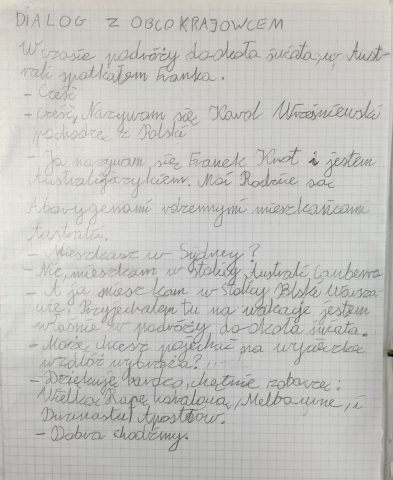 DIALOG Z OBCOKRAJOWCEM
W czasie podróży dookoła świata, w Aust-
rali spotkałem Franka.
- Cześć
- Cześć, Nazywam się Karol Wrześniewski
pochodzę z Polski
- Ja nazywam się Franek Knot i jestem
Australijczykiem. Moi Rodzice są
Aborygenami rdzennymi mieszkańcami
Australi.
- Mieszkasz w Sydney?
- Nie, mieszkam w stolicy Australi Canberra
- A ja mieszkam w stolicy Polski Warsza-
wie. Przyjechałem tu na wakacje jestem
właśnie w podróży dookoła świata.
- Może chcesz pojechać na wycieczkę
wzdłóż wybrzeża?
- Dziękuję bardzo, chętnie zobaczę:
Wielką Rafę koralową, Melbourne, i
Dwunastu Apostołów.
- Dobra chodźmy.